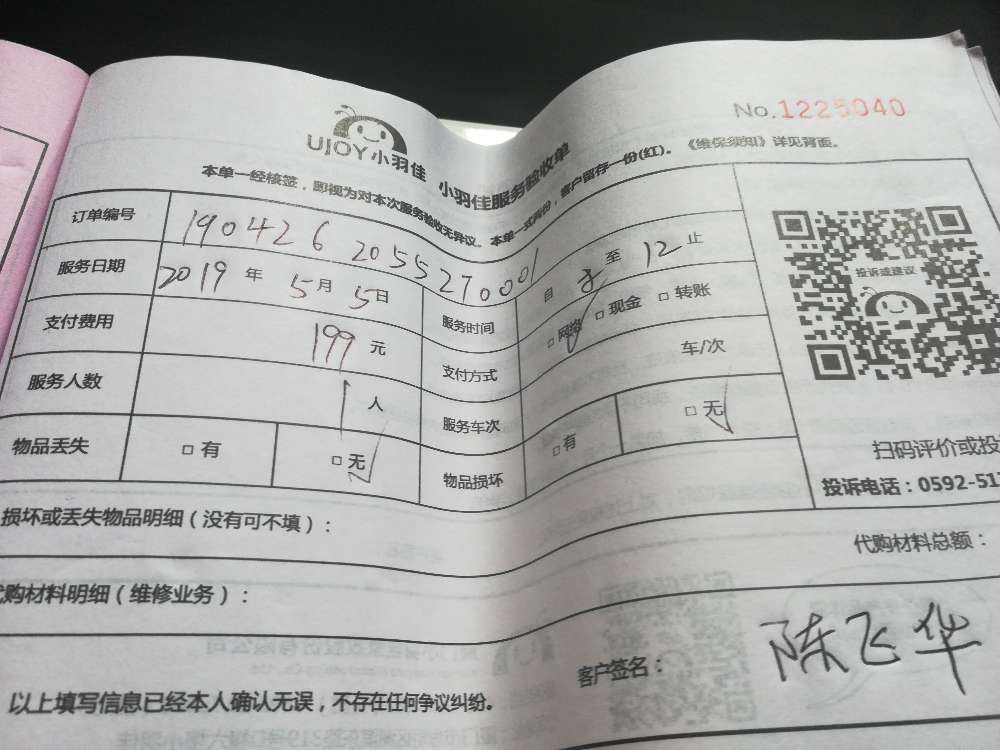 No.1225040
UJOY小羽佳 小羽佳服务验收单
本单一经核签，即视为对本次服务验收无异议。本单一式两份，客户留存一份(红)。《维保须知》详见背面。
订单编号 1904262055270001
服务日期 2019年5月5日 服务时间 自 至12止
支付费用 199元 支付方式 □网络 □现金 □转账
服务人数 1人 服务车次 车/次
物品丢失 □有 □无 物品损坏 □有 □无
投诉或建议
扫码评价或投
投诉电话：0592-51
损坏或丢失物品明细（没有可不填）：
代购材料总额：
购材料明细（维修业务）：
客户签名：陈飞华
以上填写信息已经本人确认无误，不存在任何争议纠纷。